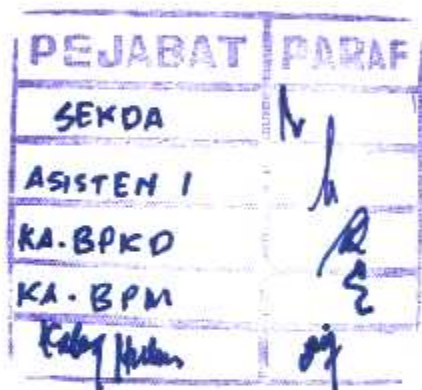 PEJABAT PARAF
SEKDA
ASISTEN 1
KA. BPKD
KA. BPM
Kabag Hukum